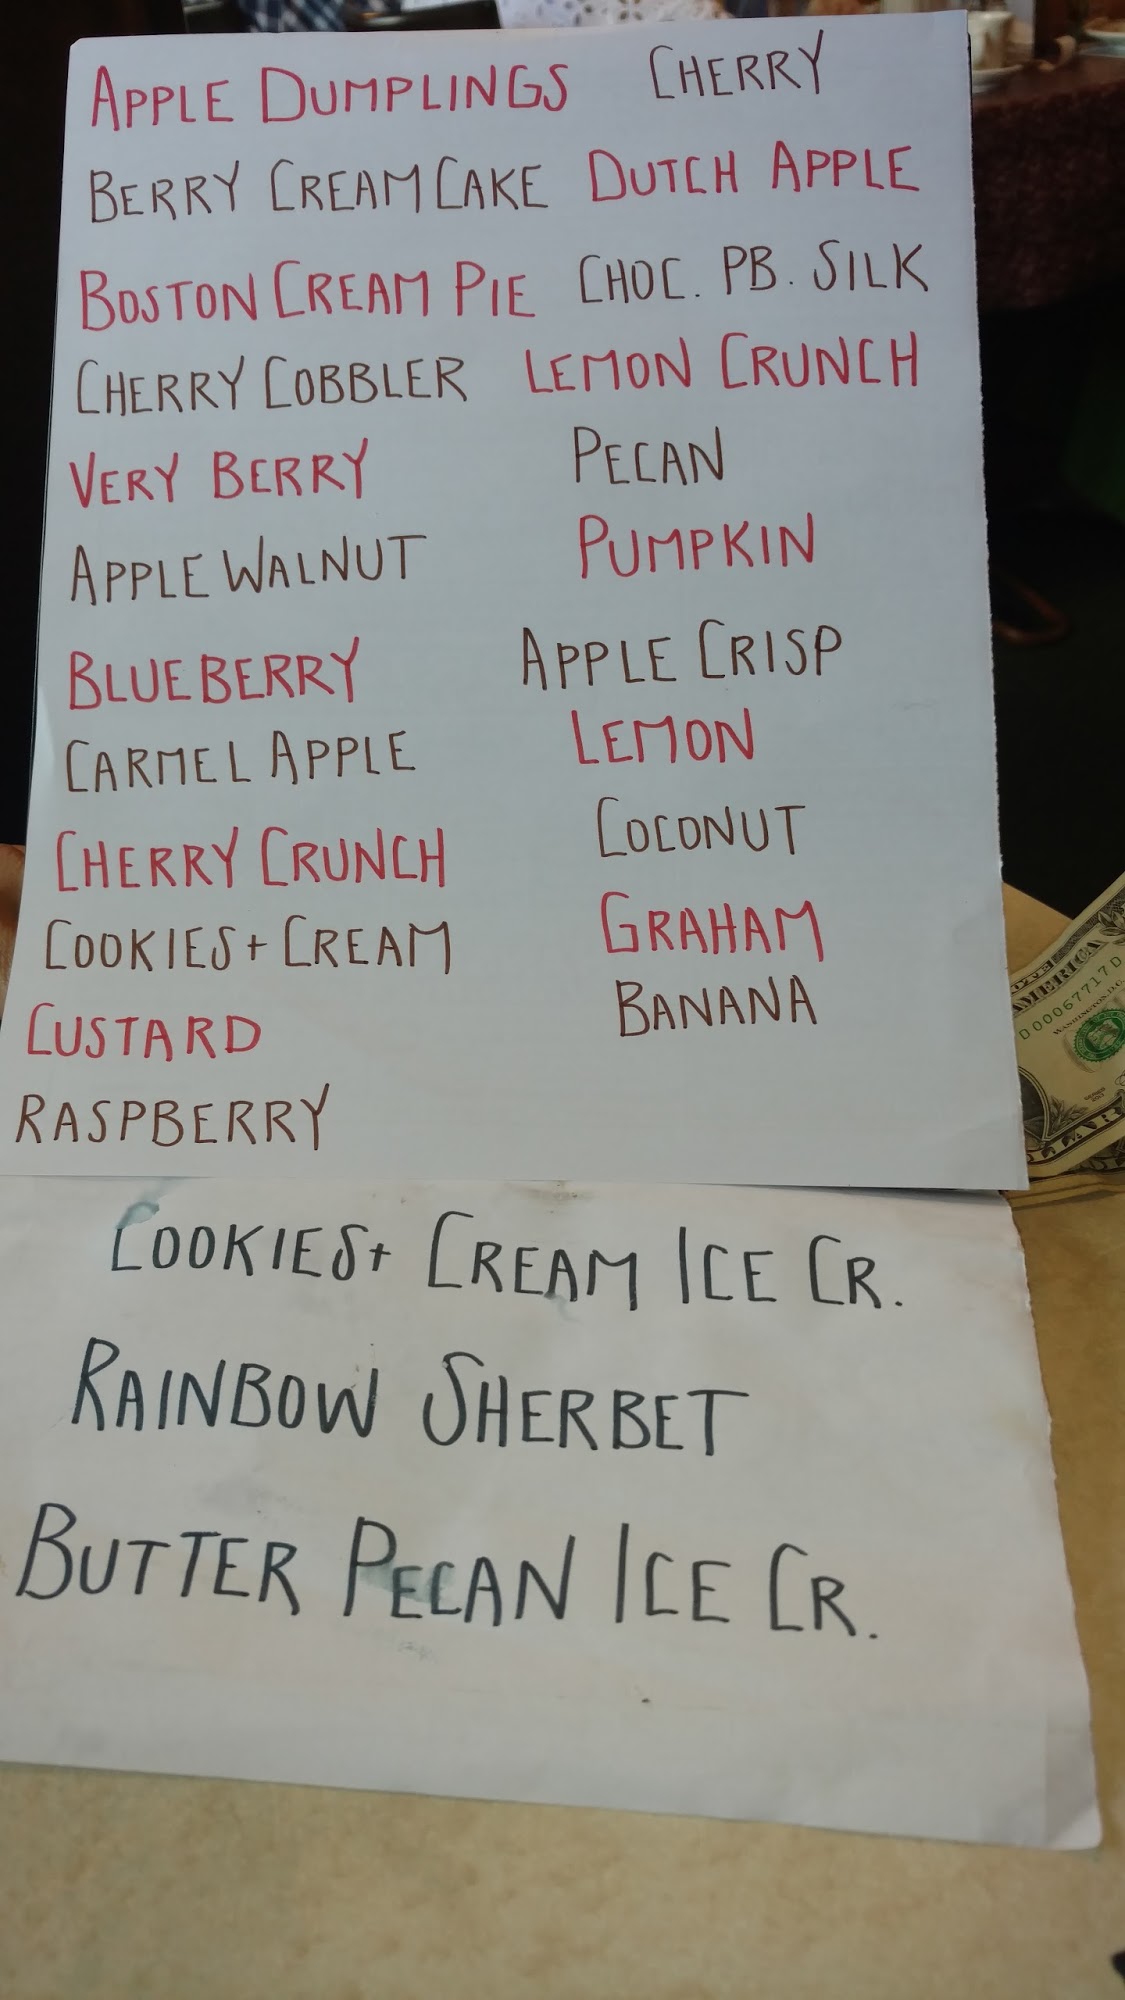 APPLE DUMPLINGS CHERRY
BERRY CREAM CAKE DUTCH APPLE
BOSTON CREAM PIE CHOC. PB. SILK
CHERRY COBBLER LEMON CRUNCH
VERY BERRY PECAN
APPLE WALNUT PUMPKIN
BLUEBERRY APPLE CRISP
CARMEL APPLE LEMON
CHERRY CRUNCH COCONUT
COOKIES + CREAM GRAHAM
CUSTARD BANANA
RASPBERRY
COOKIES + CREAM ICE CR.
RAINBOW SHERBET
BUTTER PECAN ICE CR.
AMERICA
D00067717D
WASHINGTON, D.C.